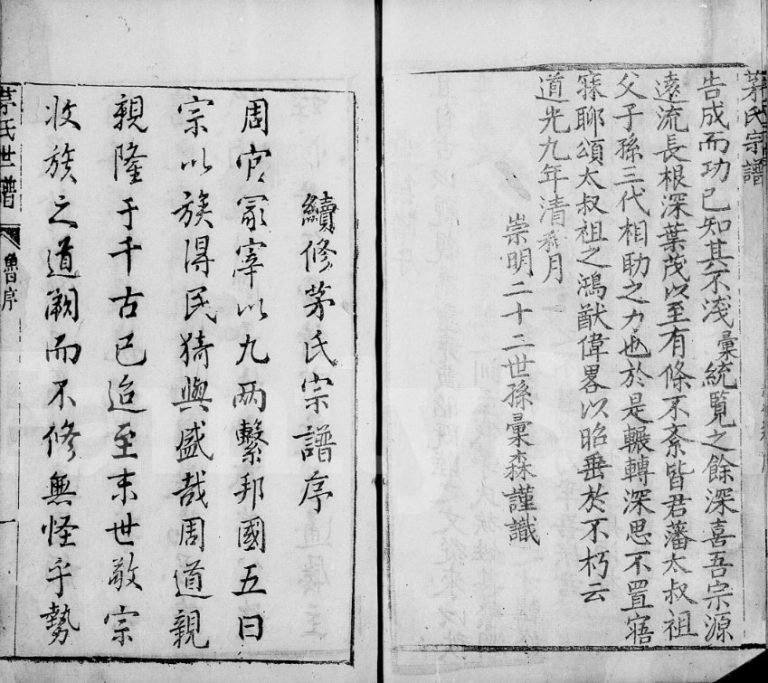 茅氏宗譜
告成而功已知其不淺彙統覽之餘深喜吾宗源
遠流長根深葉茂以至有條不紊皆君藩太叔祖
父子孫三代相助之力也於是輾轉深思不置寤
寐聊頌太叔祖之鴻猷偉畧以昭垂於不朽云
道光九年清和月
崇明二十二世孫彙森謹識
續修茅氏宗譜序
周官冢宰以九兩繫邦國五曰
宗以族得民猗與盛哉周道親
親隆于千古已迨至末世敬宗
收族之道闕而不修無怪乎勢
茅氏世譜
魯序
一